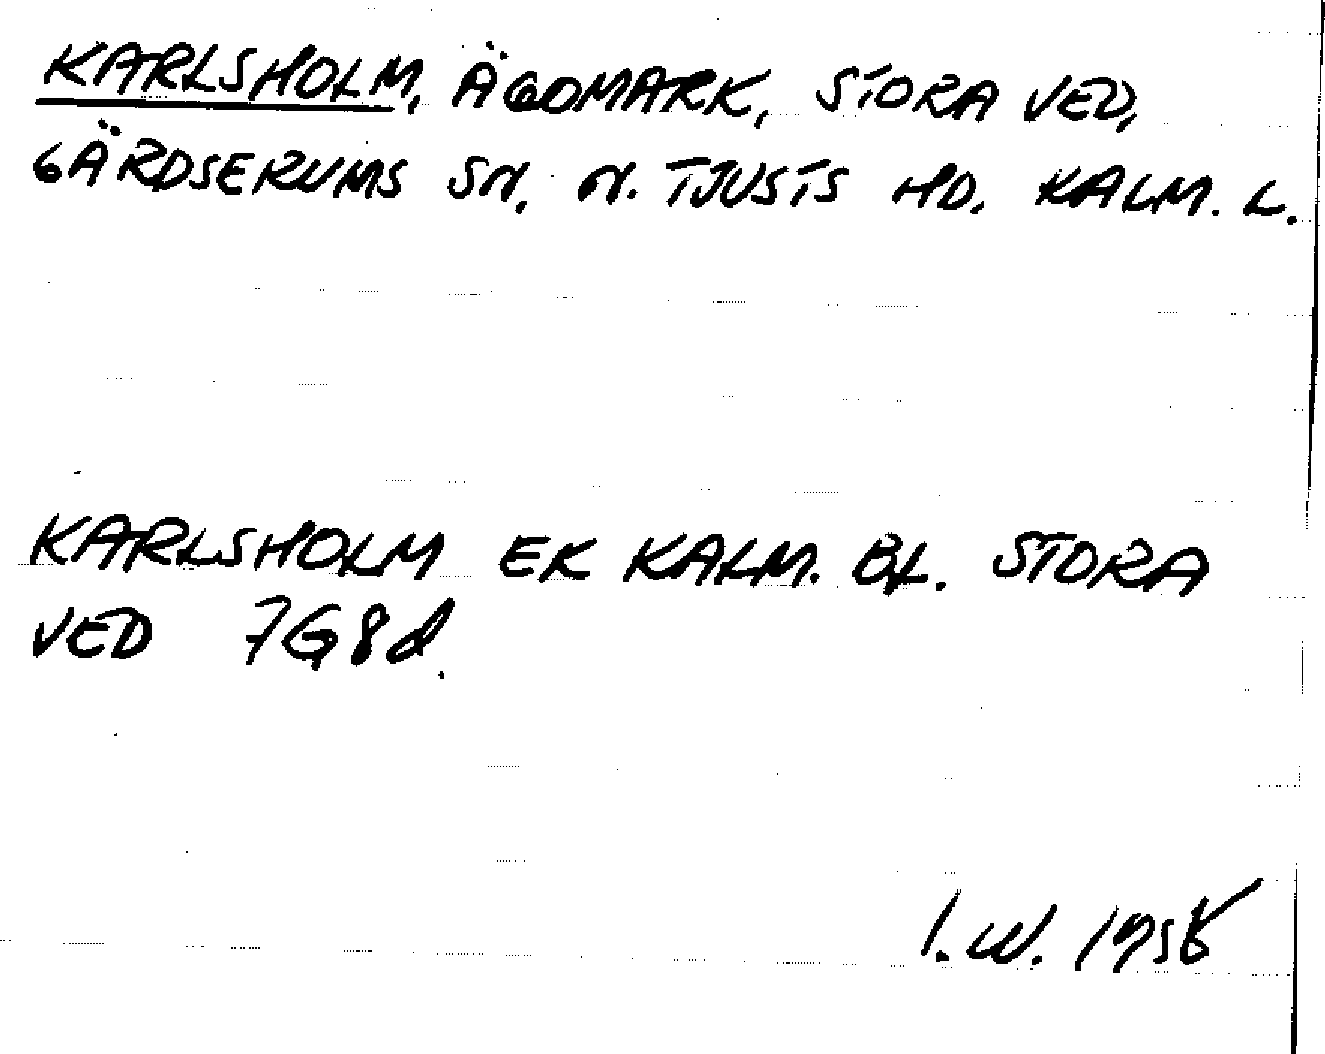 KARLSHOLM, ÄGOMARK, STORA VED,
GÄRDSERUMS SN, N. TJUSTS HD. KALM. L.
KARLSHOLM EK KALM. BL. STORA
VED 7G8d.
I.W.